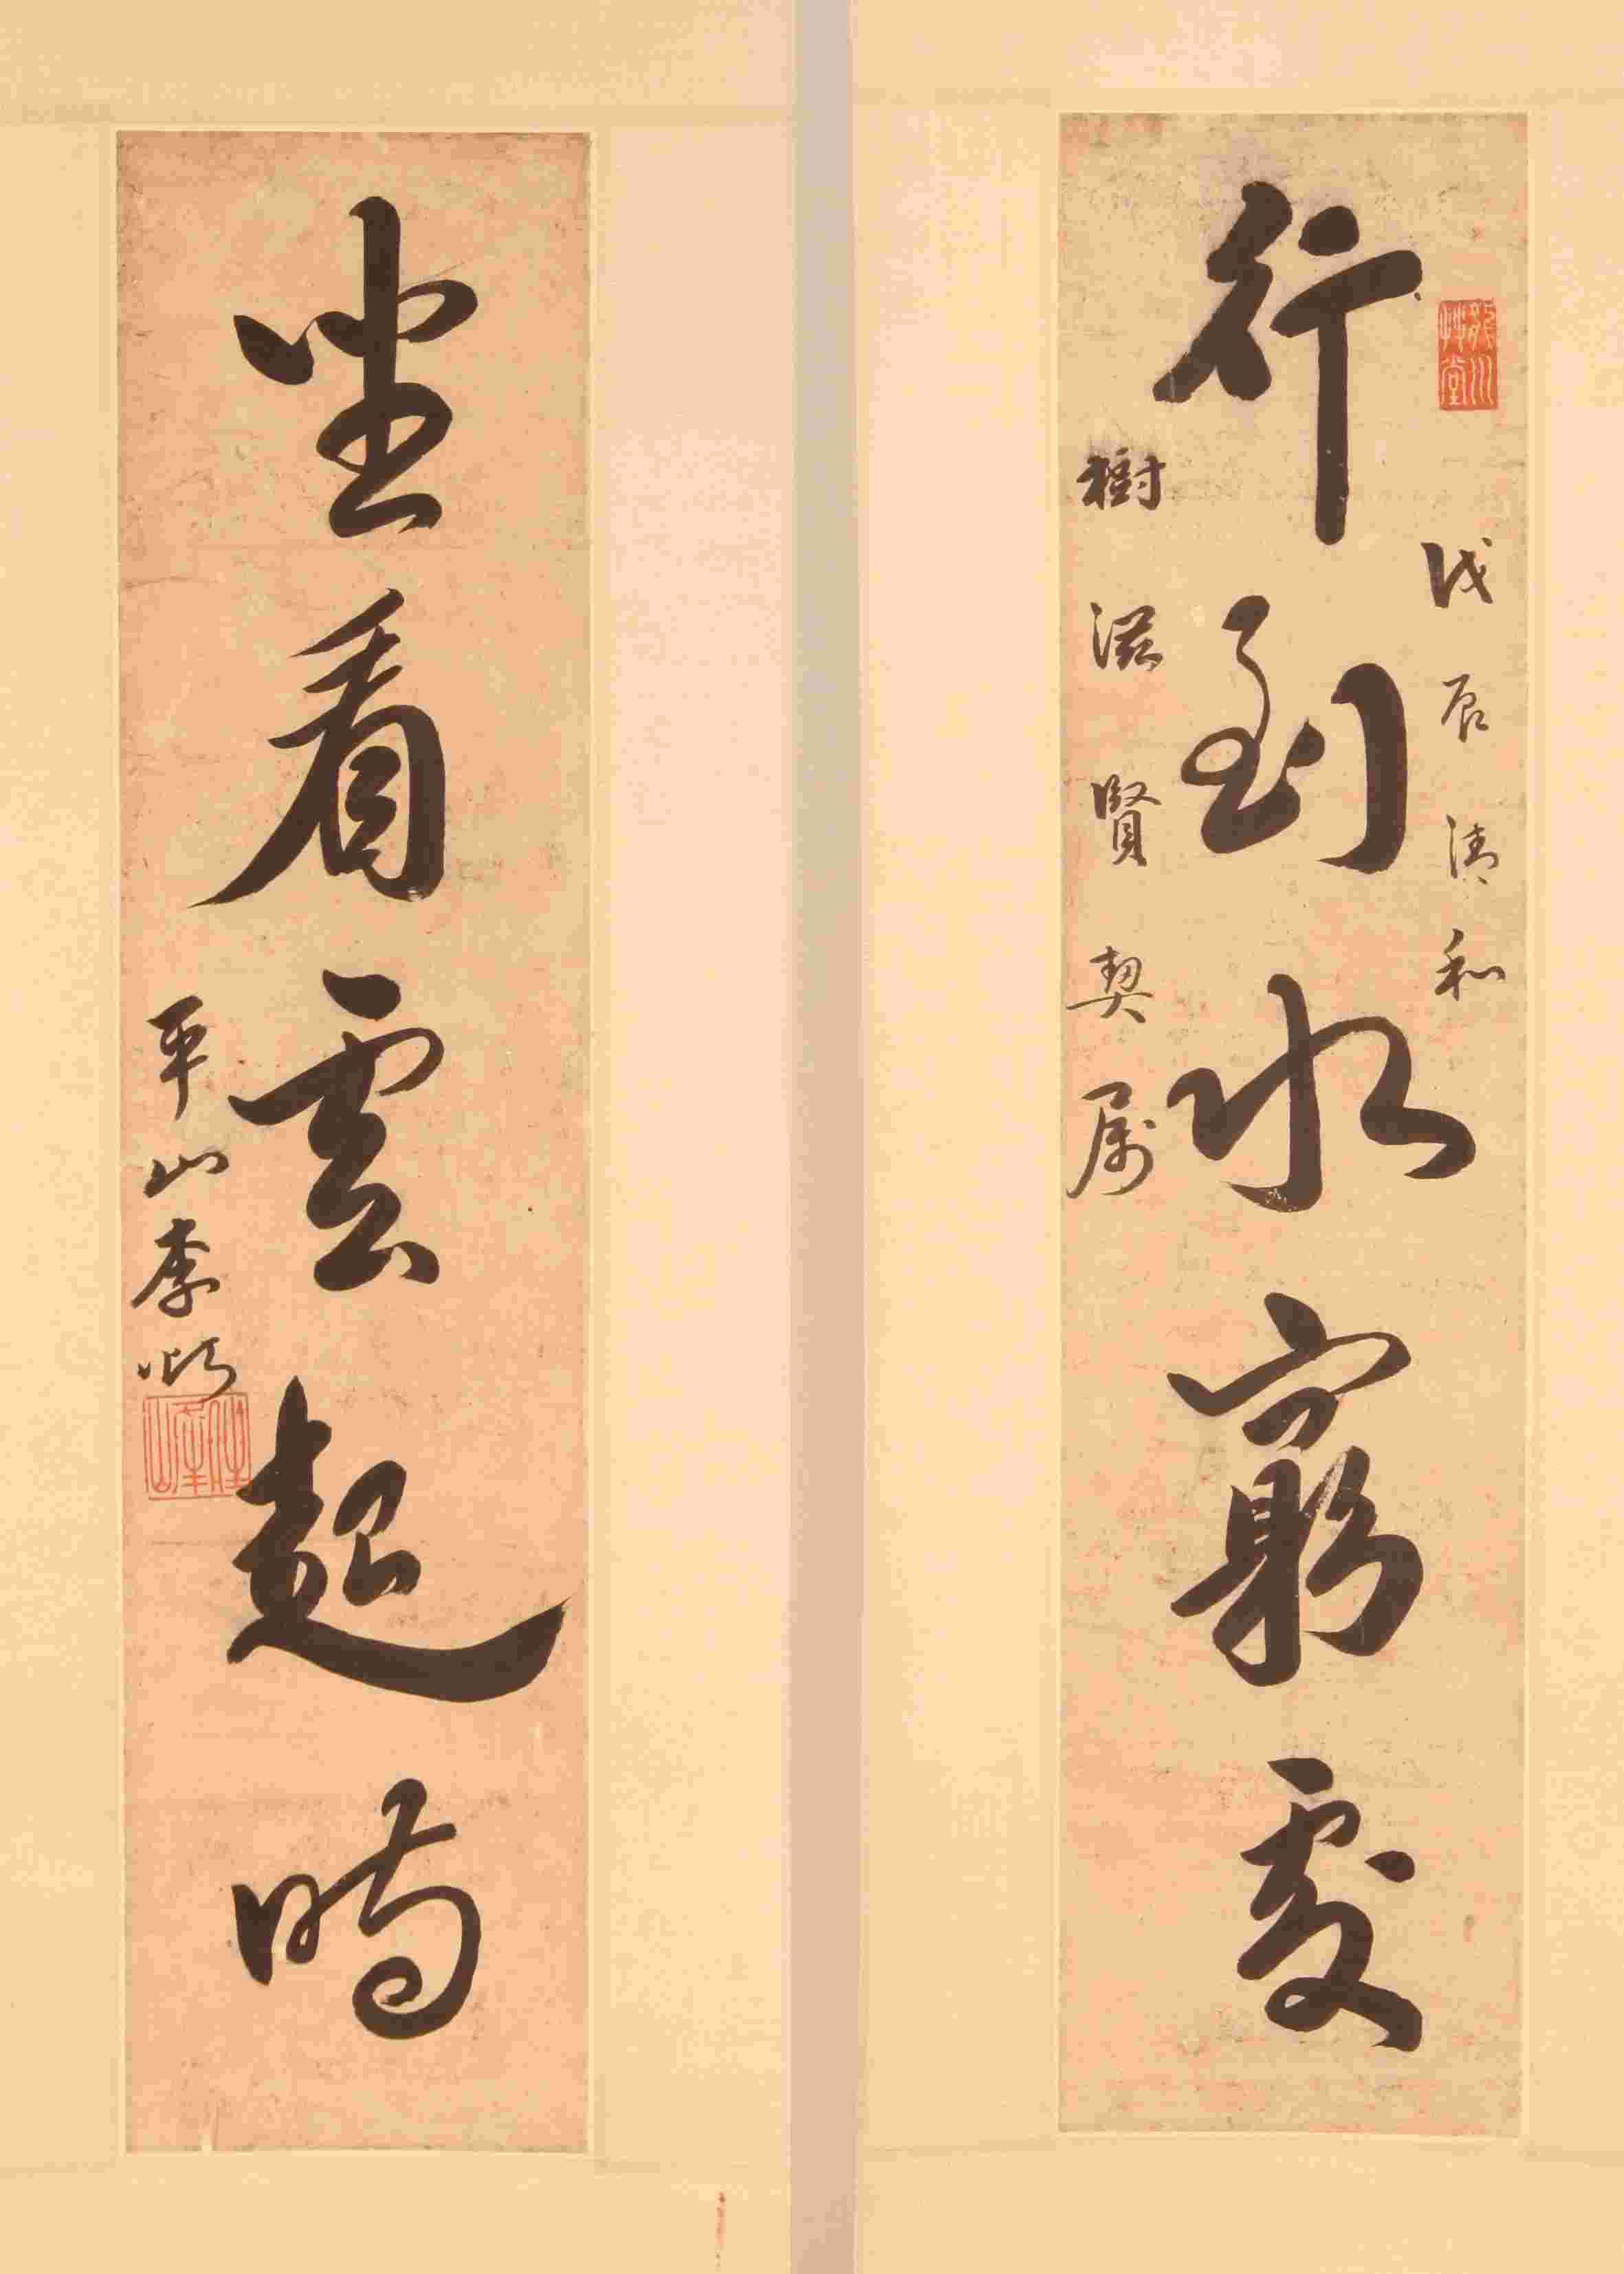 戊辰清和
行到水窮處
樹滋賢契屬
坐看雲起時
平山李